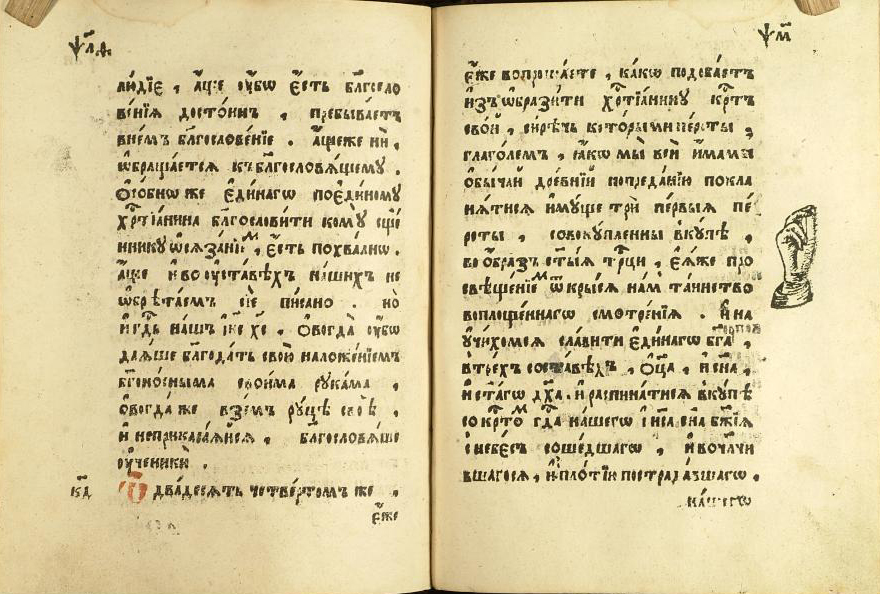 ѱл҃ѳ
лю́дїе , а҆́ще ᲂу҆́бѡ є҆́сть бл҃госло
ве́нїѧ досто́инъ , пребыва́етъ
вне́мъ бл҃гослове́нїе . а҆́щеже нѝ ,
ѡ҆браща́етсѧ къ бл҃гословѧ́щему .
Ѻ҆со́бнѡ же є҆ди́нагѡ поє҆ди́ному
хрⷭ҇тїа́нина бл҃гослови́ти комꙋ̀ сщ҃е
нникꙋ ѡ҆сѧза́нїеⷨ , є҆́сть похва́лнѡ .
а҆́ще и҆ во ᲂу҆ста́вѣхъ на́шихъ не
ѡ҆брѣта́емъ сїѐ писано . но
и҆ гдⷭ҇ь на́шъ і҆и҃с хс҃ , ѻ҆вогда̀ ᲂу҆́бѡ
даѧ́ше бл҃года́ть свою̀ наложе́нїемъ
бг҃оно́сныма свои́ма рꙋка́ма ,
ѻ҆вогда́же взе́мъ рꙋ́цѣ своѣ̀ ,
и҆ неприкаса́ѧйсѧ , бл҃гословѧ́ше
ᲂу҆ченикѝ .
к҃д Ѡ҆ два́десѧть четве́ртомъ же ,
є҆́же
ѱм҃
є҆́же вопроша́ете , ка́кѡ подоба́етъ
и҆зъѡбрази́ти хрⷭ҇тїа́нинꙋ крⷭ҇тъ
сво́й , си́рѣчь кото́рыми пе́рсты ,
глаго́лемъ , ꙗ҆́кѡ мы̀ всѝ и҆́мамы
ѻ҆бы́чай дре́внїй попреда́нїю покла
нѧ́тисѧ и҆мꙋ́ще трѝ пе́рвыѧ пе́
рсты , совокꙋ́пленны вкꙋ́пѣ ,
во ѻ҆́бразъ ст҃ы́ѧ трⷪ҇цы , є҆ѧ́же про
свѣще́нїеⷨ ѿкры́сѧ на́м та́инство
воплоще́ннагѡ смотре́нїѧ . и҆ на
ᲂу҆чи́хомсѧ сла́вити є҆ди́нагѡ бг҃а ,
втре́хъ соста́вѣхъ , ѻ҆ц҃а̀ , и҆ сн҃а ,
и҆ ст҃а́гѡ дх҃а . и҆ распина́тисѧ вкꙋ́пѣ
со крⷭ҇тоⷨ гдⷭ҇а на́шегѡ і҆и҃са сн҃а бж҃їѧ
с небе́съ соше́дшагѡ , и҆ вочл҃чи
вшагосѧ , и҆ пло́тїю пострада́вшагѡ .
на́шегѡ